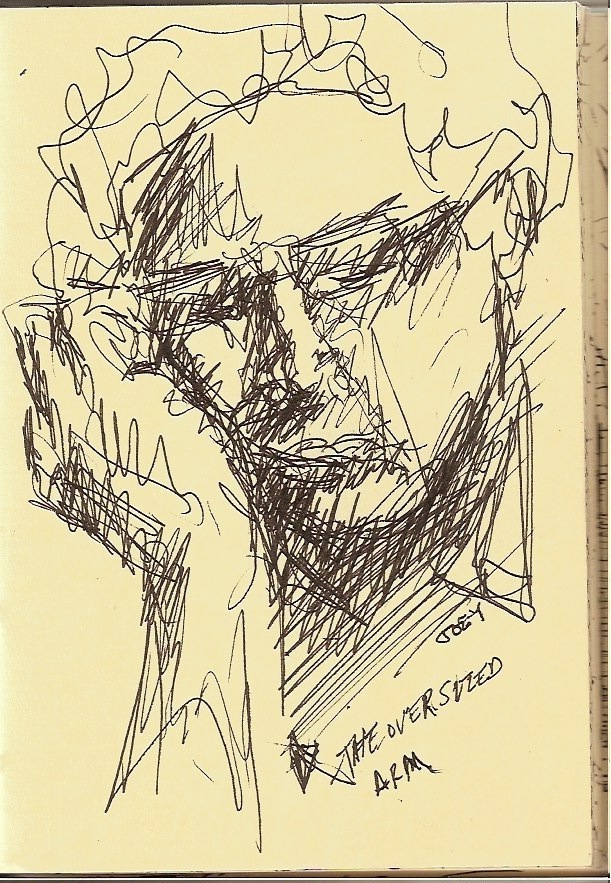 JOEY
THE OVERSIZED
ARM